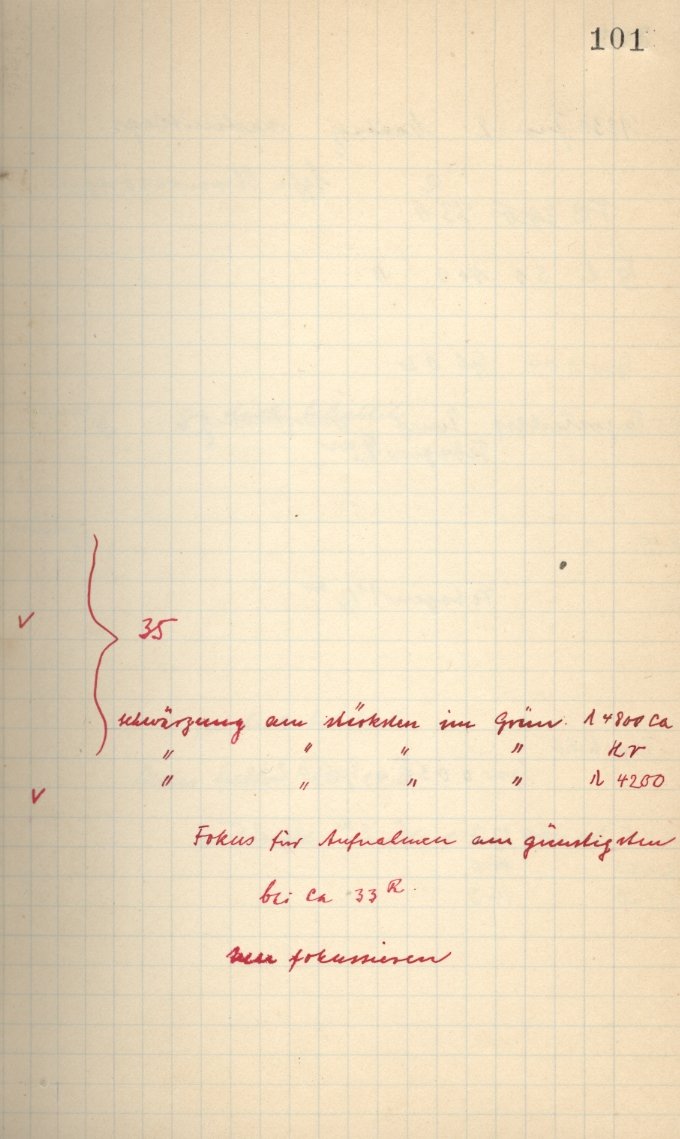 101
35
schwärzung am stärksten im Grün. λ 4800 ca
" " " " Hγ
" " " " λ 4200
Fokus für Aufnahmen am günstigsten
bei ca 33 R.
neu fokussieren